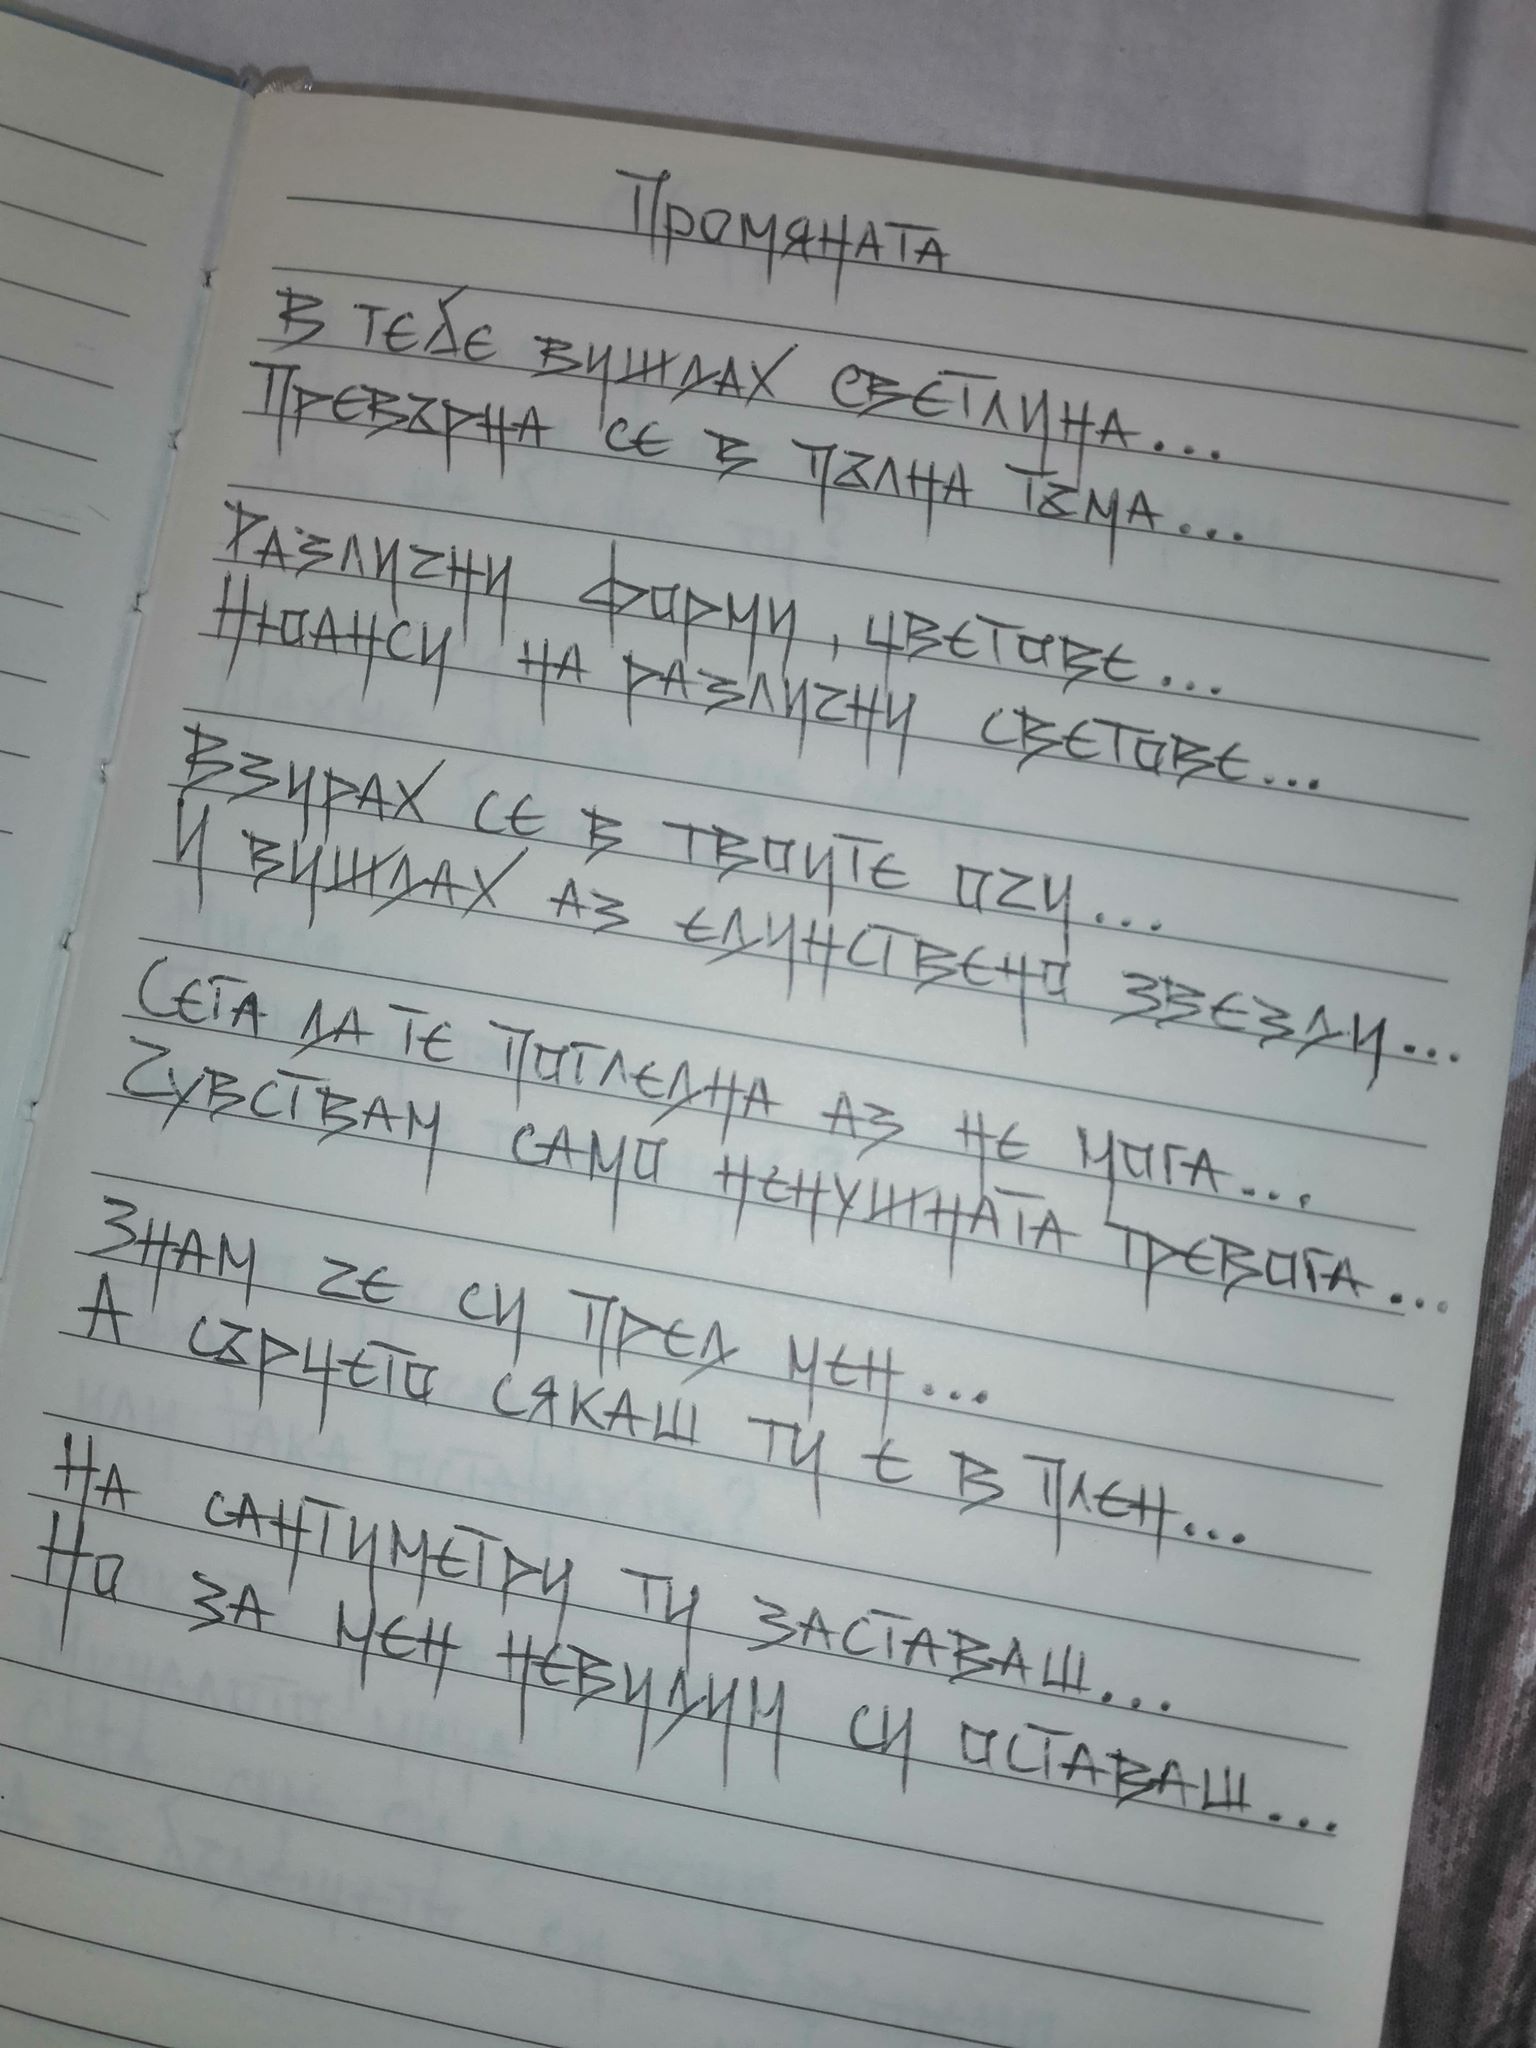 Промяната
В тебе виждах светлина...
Превърна се в пълна тъма...
Различни форми, цветове...
Нюанси на различни светове...
Взирах се в твоите очи...
И виждах аз единствено звезди...
Сега да те погледна аз не мога...
Чувствам само ненужната тревога...
Знам че си пред мен...
А сърцето сякаш ти е в плен...
На сантиметри ти заставаш...
Но за мен невидим си оставаш...